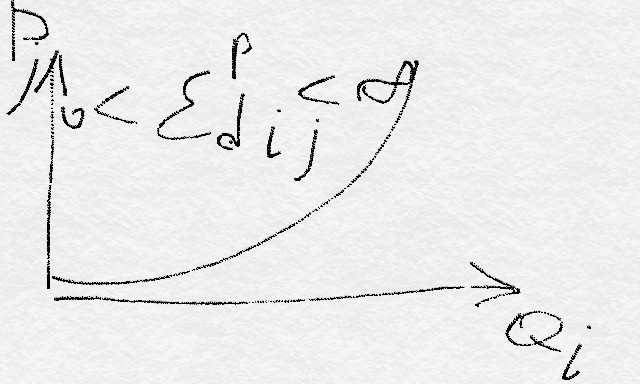 P_j
0 < Ɛ^p_{d ij} < ∞
Q_i